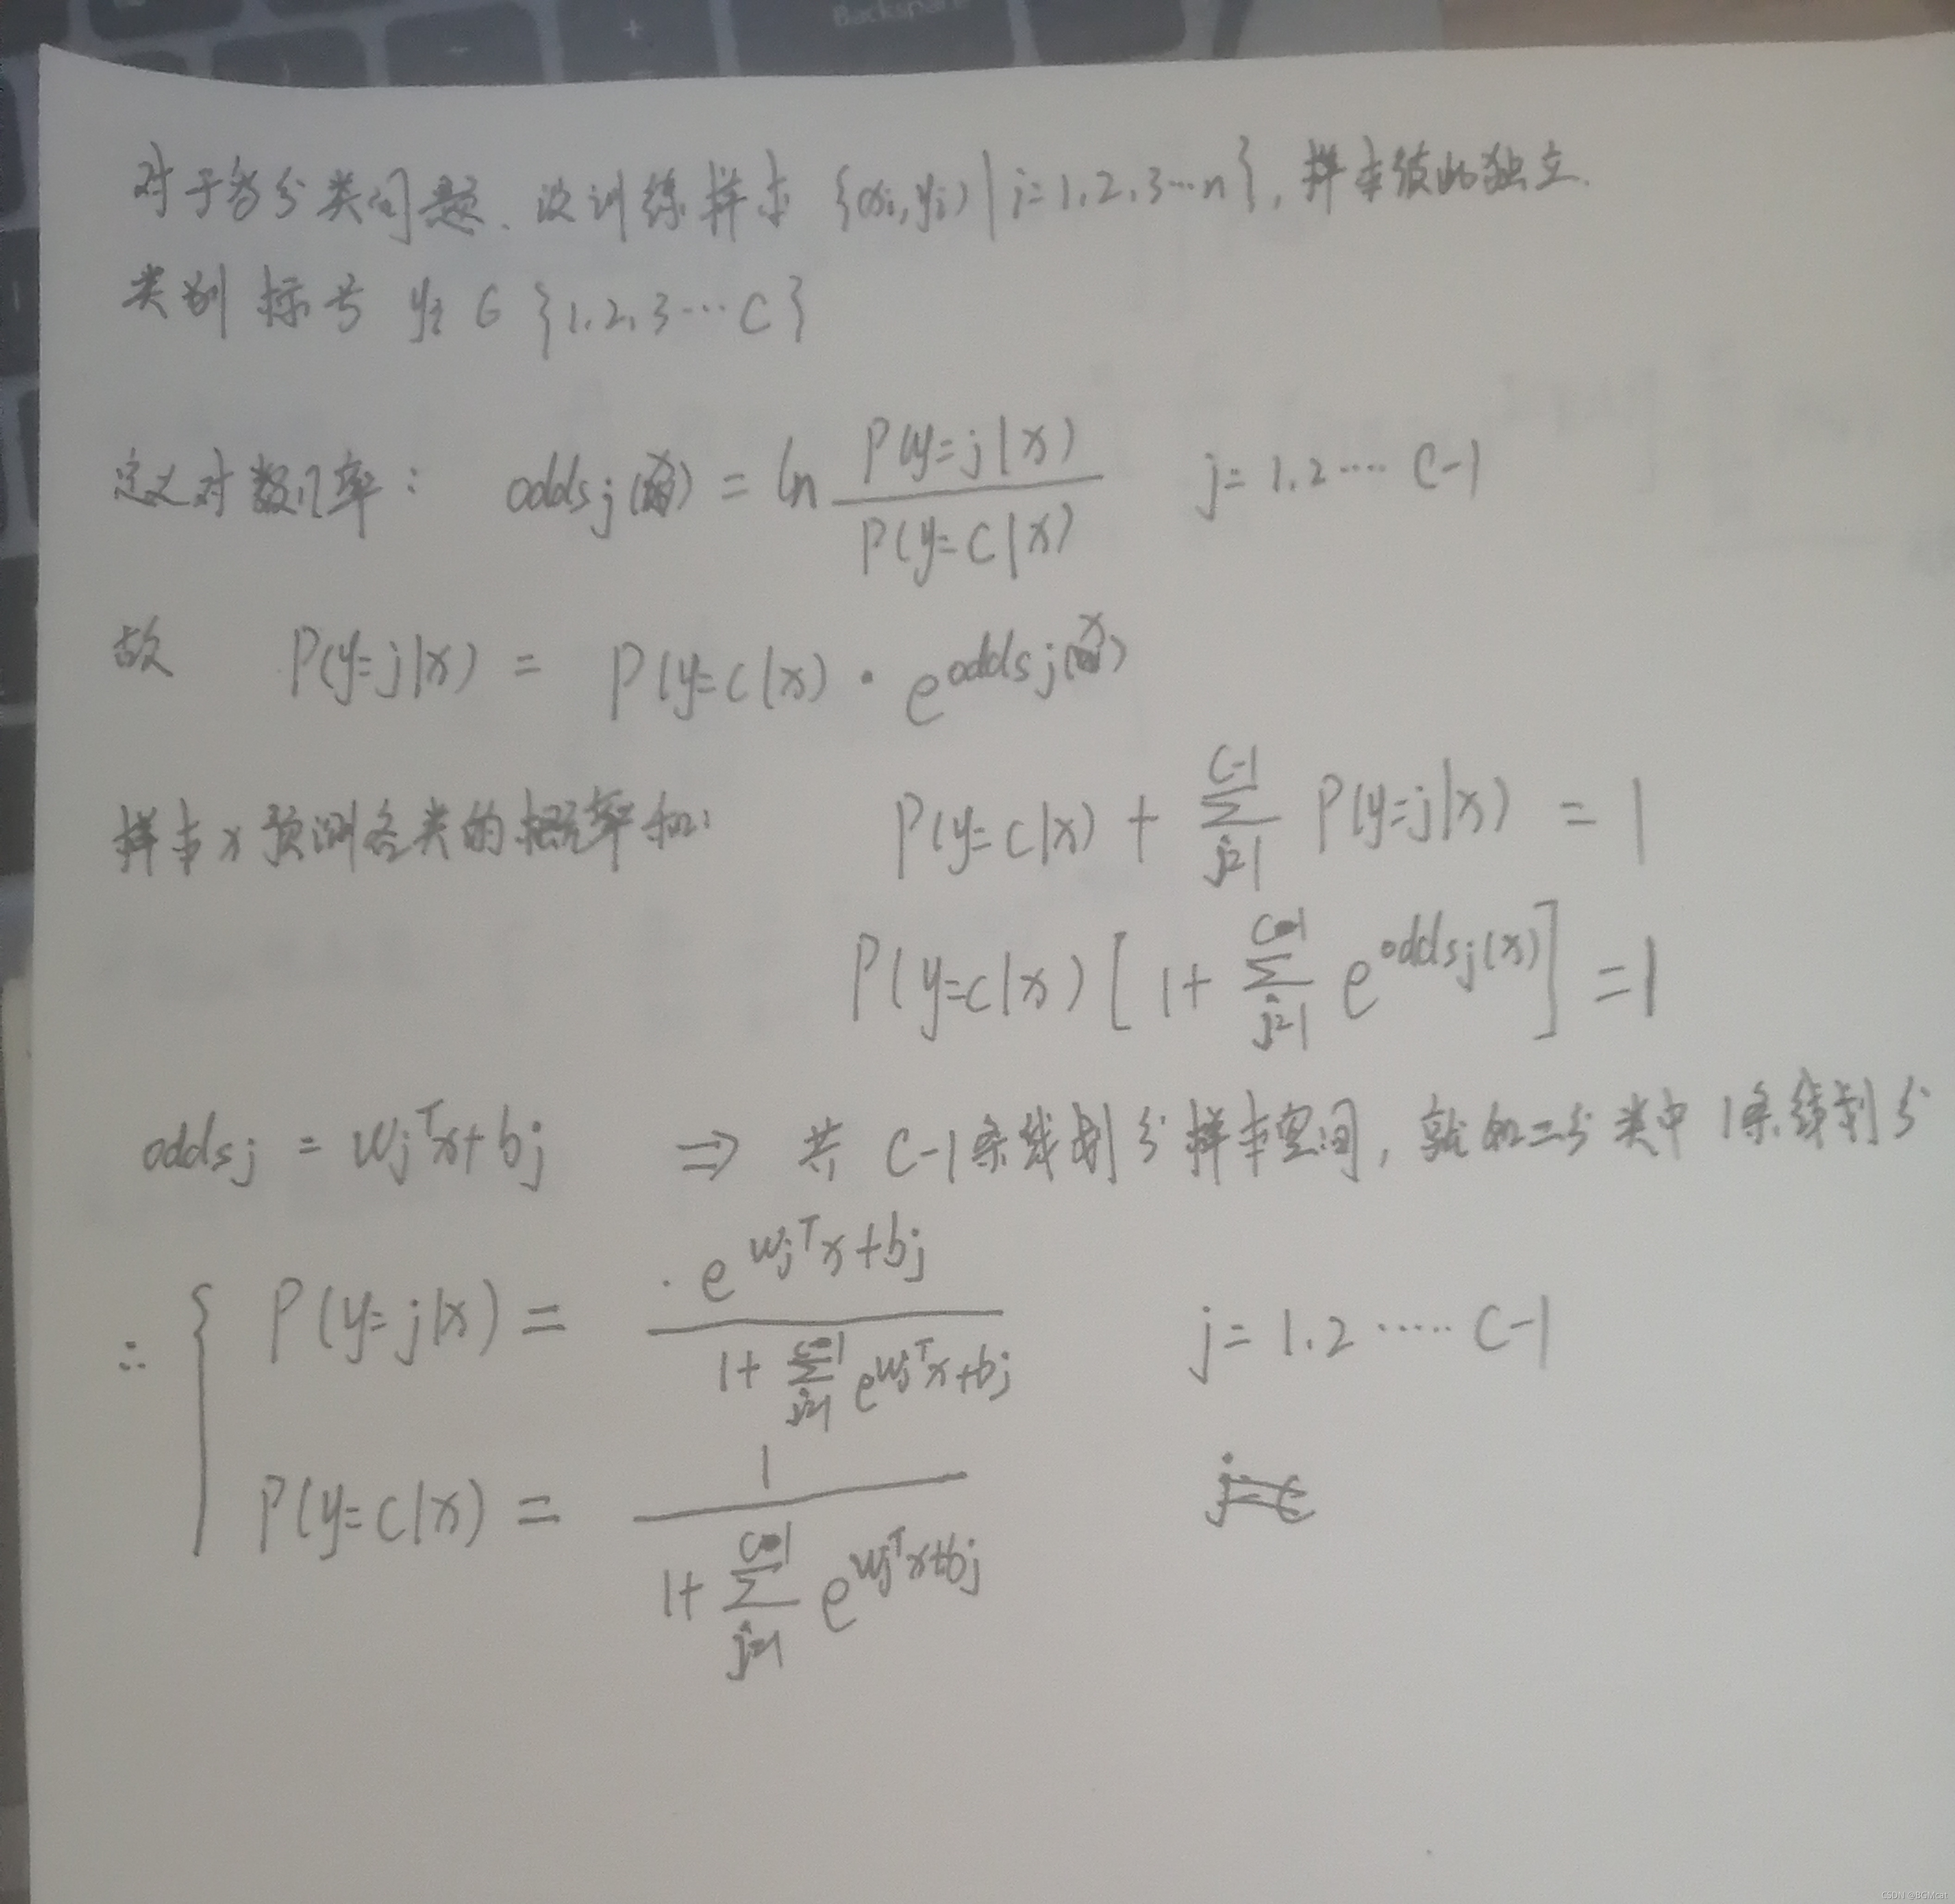 Backspace
对于多分类问题、设训练样本 {(xi, yi) | i=1,2,3…n}, 样本彼此独立.
类别标号 yi ∈ {1,2,3…C}
定义对数几率: oddsj(x) = ln P(y=j|x) / P(y=C|x) j=1.2…. C-1
故 P(y=j|x) = P(y=C|x) · e^{oddsj(x)}
样本x预测各类的概率和: P(y=C|x) + Σ_{j=1}^{C-1} P(y=j|x) = 1
P(y=C|x) [1+ Σ_{j=1}^{C-1} e^{oddsj(x)}] = 1
oddsj = wj^T x + bj ⇒ 共 C-1条线划分样本空间, 就如二分类中1条线划分
∴ { P(y=j|x) = e^{wj^T x+bj} / (1+ Σ_{j=1}^{C-1} e^{wj^T x+bj}) j=1.2….. C-1
P(y=C|x) = 1 / (1+ Σ_{j=1}^{C-1} e^{wj^T x+bj})